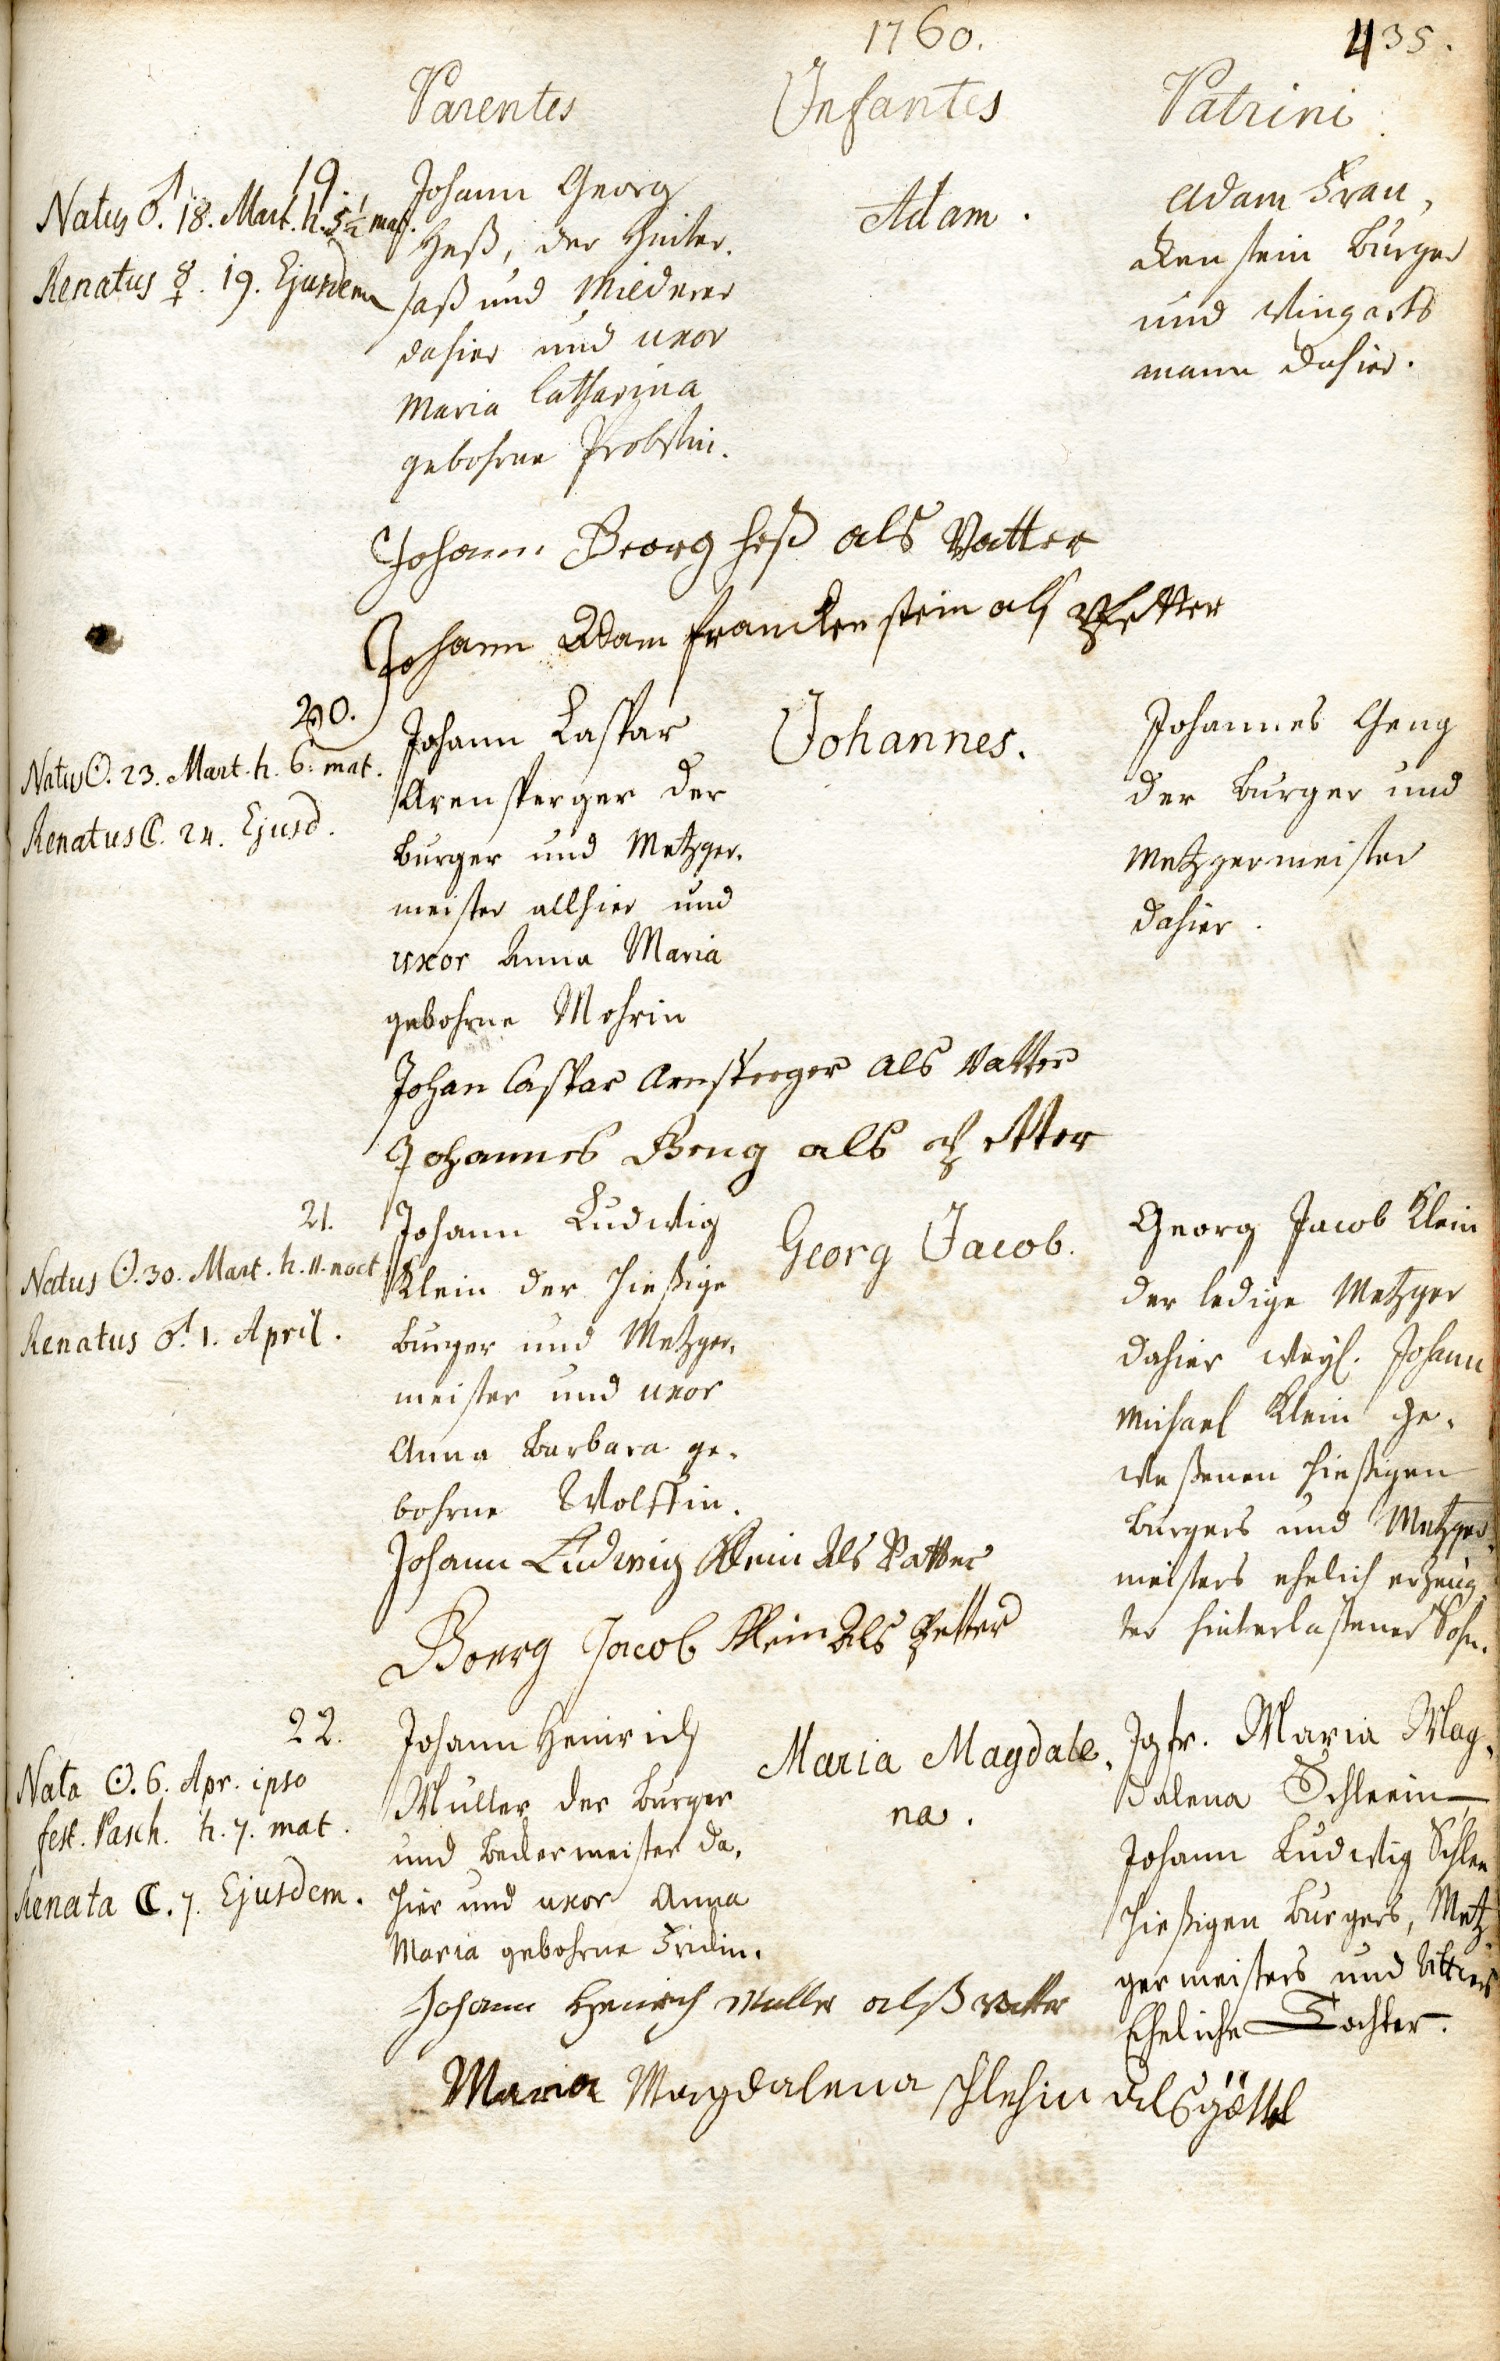 1760.
435.
Parentes
Infantes
Patrini
19.
Natus ♂. 18. Mart. h. 5½ mat.
Renatus ☿. 19. Ejusdem
Johann Georg
Heß, der Hinter-
saß und
dahier und uxor
Maria Catharina
gebohrne Probstin.
Adam.
Adam Fran-
ckenstein Burger
und Wingerts
mann dahier.
Johann Georg Heß als Vatter
Johann Adam Franckenstein als Pfetter
20.
Natus ☉. 23. Mart. h. 6. mat.
Renatus ☾. 24. Ejusd.
Johann Caspar
Arensperger der
Burger und Metzger-
meister allhier und
uxor Anna Maria
gebohrne Mohrin
Johannes.
Johannes Geng
der Burger und
Metzgermeister
dahier.
Johan Caspar Arnsperger als Vatter
Johannes Geng als Pfetter
21.
Natus ☉. 30. Mart. h. 11. noct.
Renatus ♂. 1. April.
Johann Ludwig
Klein der hießige
Burger und Metzger-
meister und uxor
Anna Barbara ge-
bohrne Wolffin.
Georg Jacob.
Georg Jacob Klein
der ledige Metzger
dahier weyl. Johann
Michael Klein ge-
weßenen hießigen
Burgers und Metzger-
meisters ehelich erzeug-
ter hinterlaßener Sohn.
Johann Ludwig Klein Als Vatter
Goerg Jacob Klein Als Petter
22.
Nata ☉. 6. Apr. ipso
fest. Pasch. h. 7. mat.
Renata ☾. 7. Ejusdem.
Johann Heinrich
Müller der Burger
und Beckermeister da-
hier und uxor Anna
Maria gebohrne Fridin.
Maria Magdale-
na.
Jgfr. Maria Mag-
dalena Schleein
Johann Ludwig Schlee
hießigen Burgers, Metz-
germeisters und
Eheliche Tochter.
Johann Henrich Müller alß Vatter
Maria Magdalena Schlehin als göttel